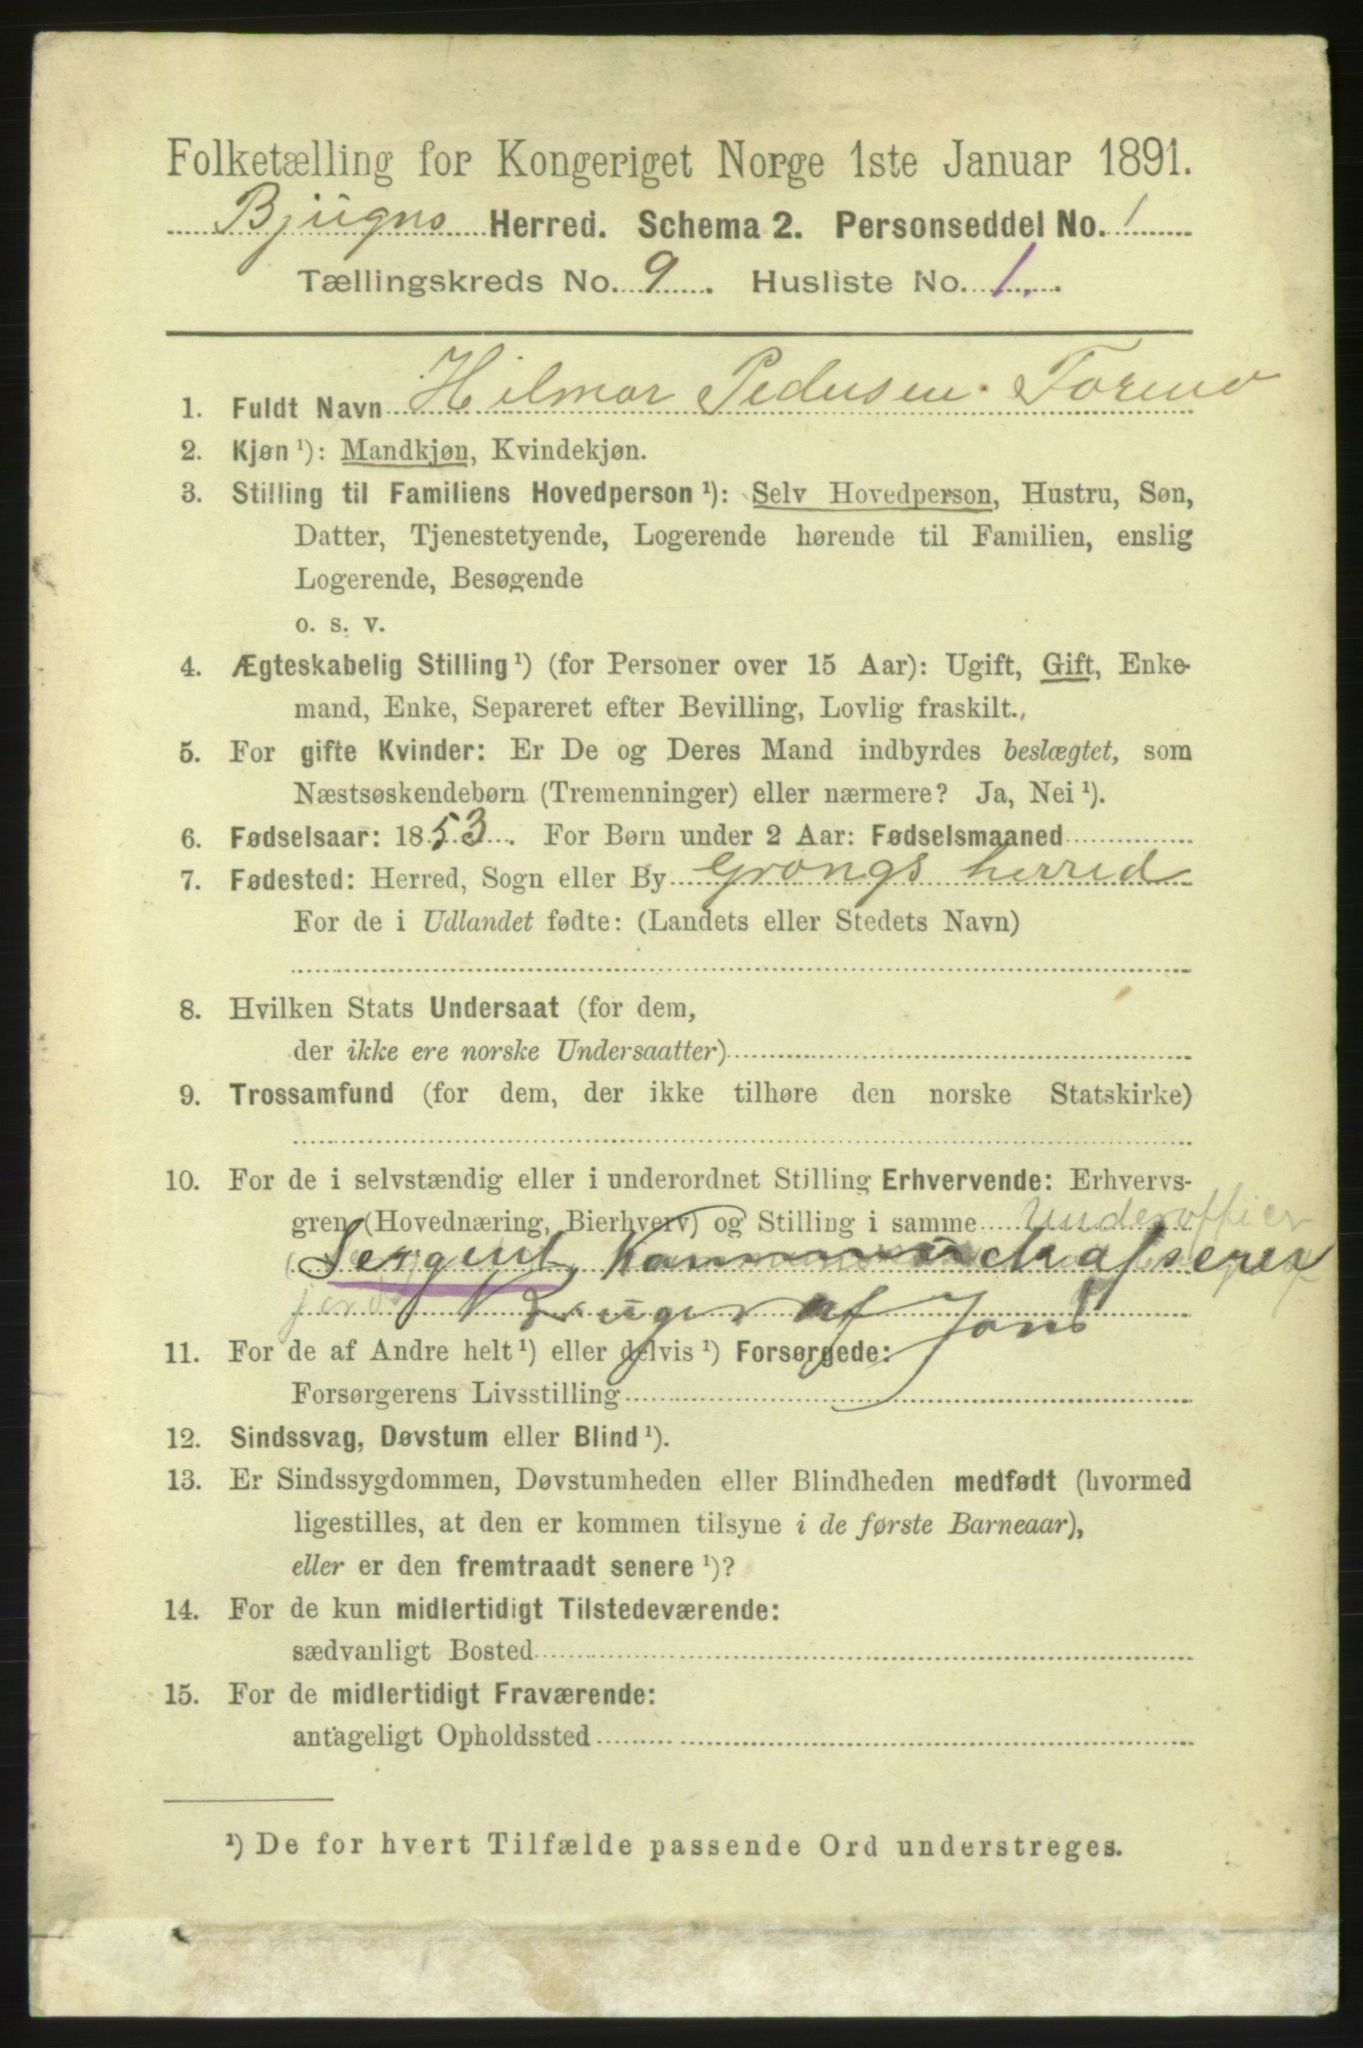 Folketælling for Kongeriget Norge 1ste Januar 1891.
Bjugns Herred. Schema 2. Personseddel No. 1
Tællingskreds No. 9. Husliste No. 1.
1. Fuldt Navn Hilmar Pedersen Formo
2. Kjøn ¹): Mandkjøn, Kvindekjøn.
3. Stilling til Familiens Hovedperson ¹): Selv Hovedperson, Hustru, Søn,
Datter, Tjenestetyende, Logerende hørende til Familien, enslig
Logerende, Besøgende
o. s. v.
4. Ægteskabelig Stilling ¹) (for Personer over 15 Aar): Ugift, Gift, Enke-
mand, Enke, Separeret efter Bevilling, Lovlig fraskilt.
5. For gifte Kvinder: Er De og Deres Mand indbyrdes beslægtet, som
Næstsøskendebørn (Tremenninger) eller nærmere? Ja, Nei ¹).
6. Fødselsaar: 1853. For Børn under 2 Aar: Fødselsmaaned
7. Fødested: Herred, Sogn eller By Grongs herred
For de i Udlandet fødte: (Landets eller Stedets Navn)
8. Hvilken Stats Undersaat (for dem,
der ikke ere norske Undersaatter)
9. Trossamfund (for dem, der ikke tilhøre den norske Statskirke)
10. For de i selvstændig eller i underordnet Stilling Erhvervende: Erhvervs-
gren (Hovednæring, Bierhverv) og Stilling i samme Underofficer
Sergent,
Bruger af Jord
11. For de af Andre helt ¹) eller delvis ¹) Forsørgede:
Forsørgerens Livsstilling
12. Sindssvag, Døvstum eller Blind ¹).
13. Er Sindssygdommen, Døvstumheden eller Blindheden medfødt (hvormed
ligestilles, at den er kommen tilsyne i de første Barneaar),
eller er den fremtraadt senere ¹)?
14. For de kun midlertidigt Tilstedeværende:
sædvanligt Bosted
15. For de midlertidigt Fraværende:
antageligt Opholdssted
¹) De for hvert Tilfælde passende Ord understreges.